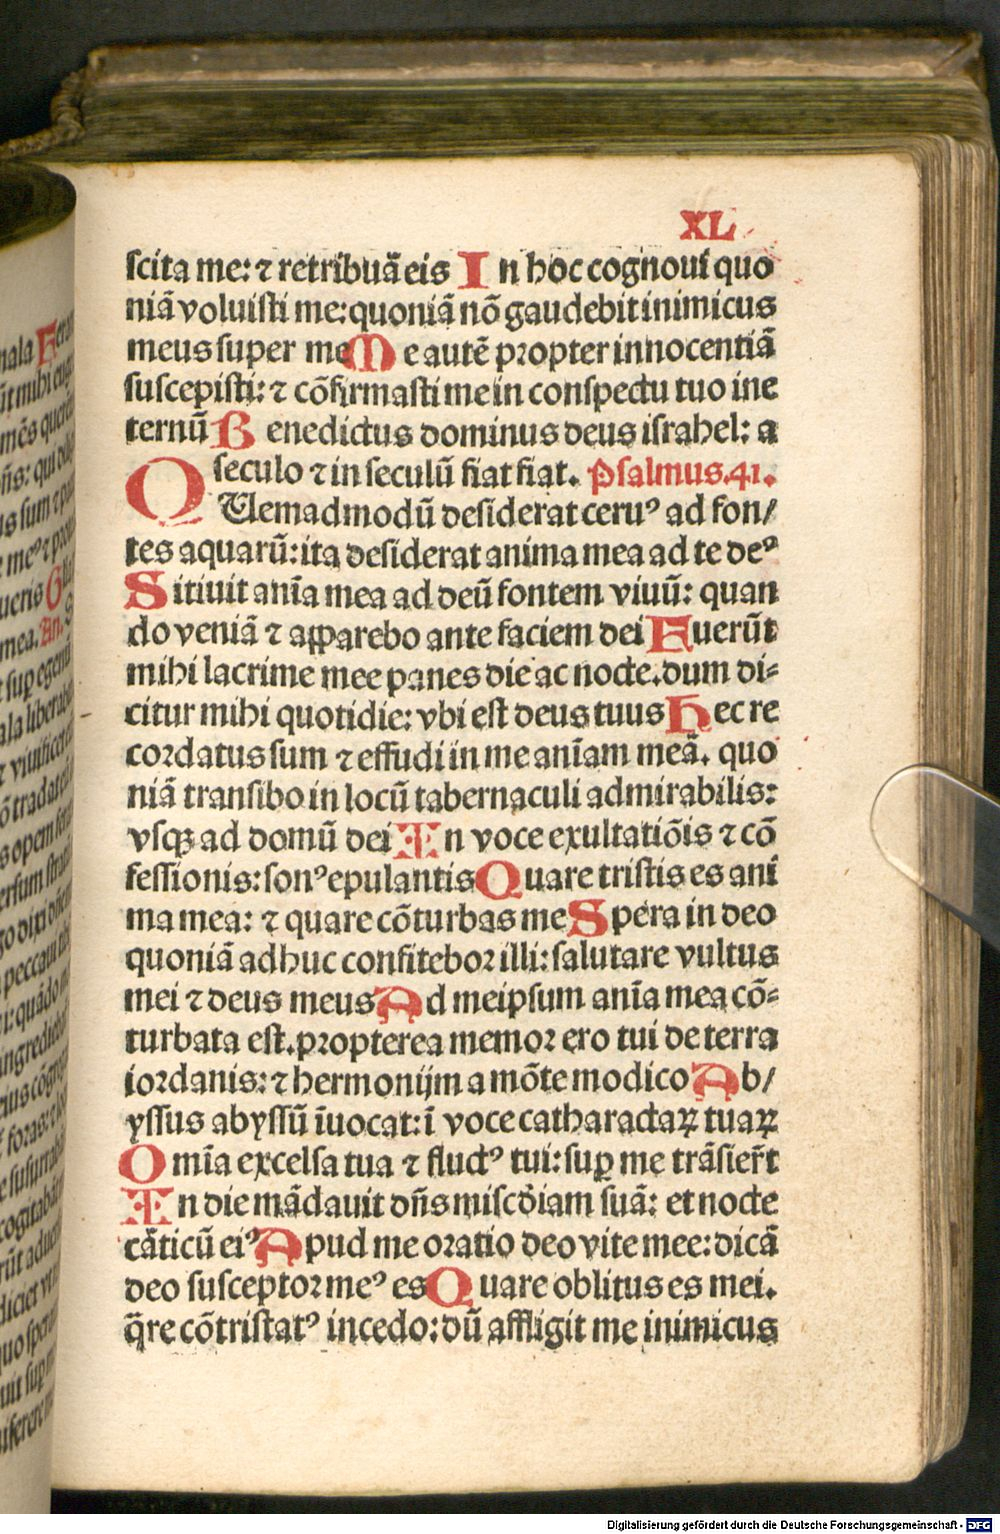 XL
scita me: ⁊ retribuā eis In hoc cognoui quo
niā voluisti me: quoniā nō gaudebit inimicus
meus super me Me autē propter innocentiā
suscepisti: ⁊ cōfirmasti me in conspectu tuo in e
ternū Benedictus dominus deus israhel: a
seculo ⁊ in seculū fiat fiat. Psalmus.41.
QUemadmodū desiderat ceruꝰ ad fon/
tes aquarū: ita desiderat anima mea ad te deꝰ
Sitiuit anīa mea ad deū fontem viuū: quan
do veniā ⁊ apparebo ante faciem dei Fuerūt
mihi lacrime mee panes die ac nocte. dum di⸗
citur mihi quotidie: vbi est deus tuus Hec re
cordatus sum ⁊ effudi in me anīam meā. quo
niā transibo in locū tabernaculi admirabilis:
vsqꝫ ad domū dei In voce exultatiōis ⁊ cō
fessionis: sonꝰ epulantis Quare tristis es ani
ma mea: ⁊ quare cōturbas me Spera in deo
quoniā adhuc confitebor illi: salutare vultus
mei ⁊ deus meus Ad meipsum anīa mea cō⸗
turbata est. propterea memor ero tui de terra
iordanis: ⁊ hermonijm a mōte modico Ab/
yssus abyssū īuocat: ī voce catharactaꝝ tuaꝝ
Omīa excelsa tua ⁊ fluctꝰ tui: suꝑ me trāsier̄t
In die mādauit dn̄s misc̄diam suā: et nocte
cāticū eiꝰ Apud me oratio deo vite mee: dicā
deo susceptor meꝰ es Quare oblitus es mei.
q̄re cōtristatꝰ incedo: dū affligit me inimicus
Digitalisierung gefördert durch die Deutsche Forschungsgemeinschaft - DFG